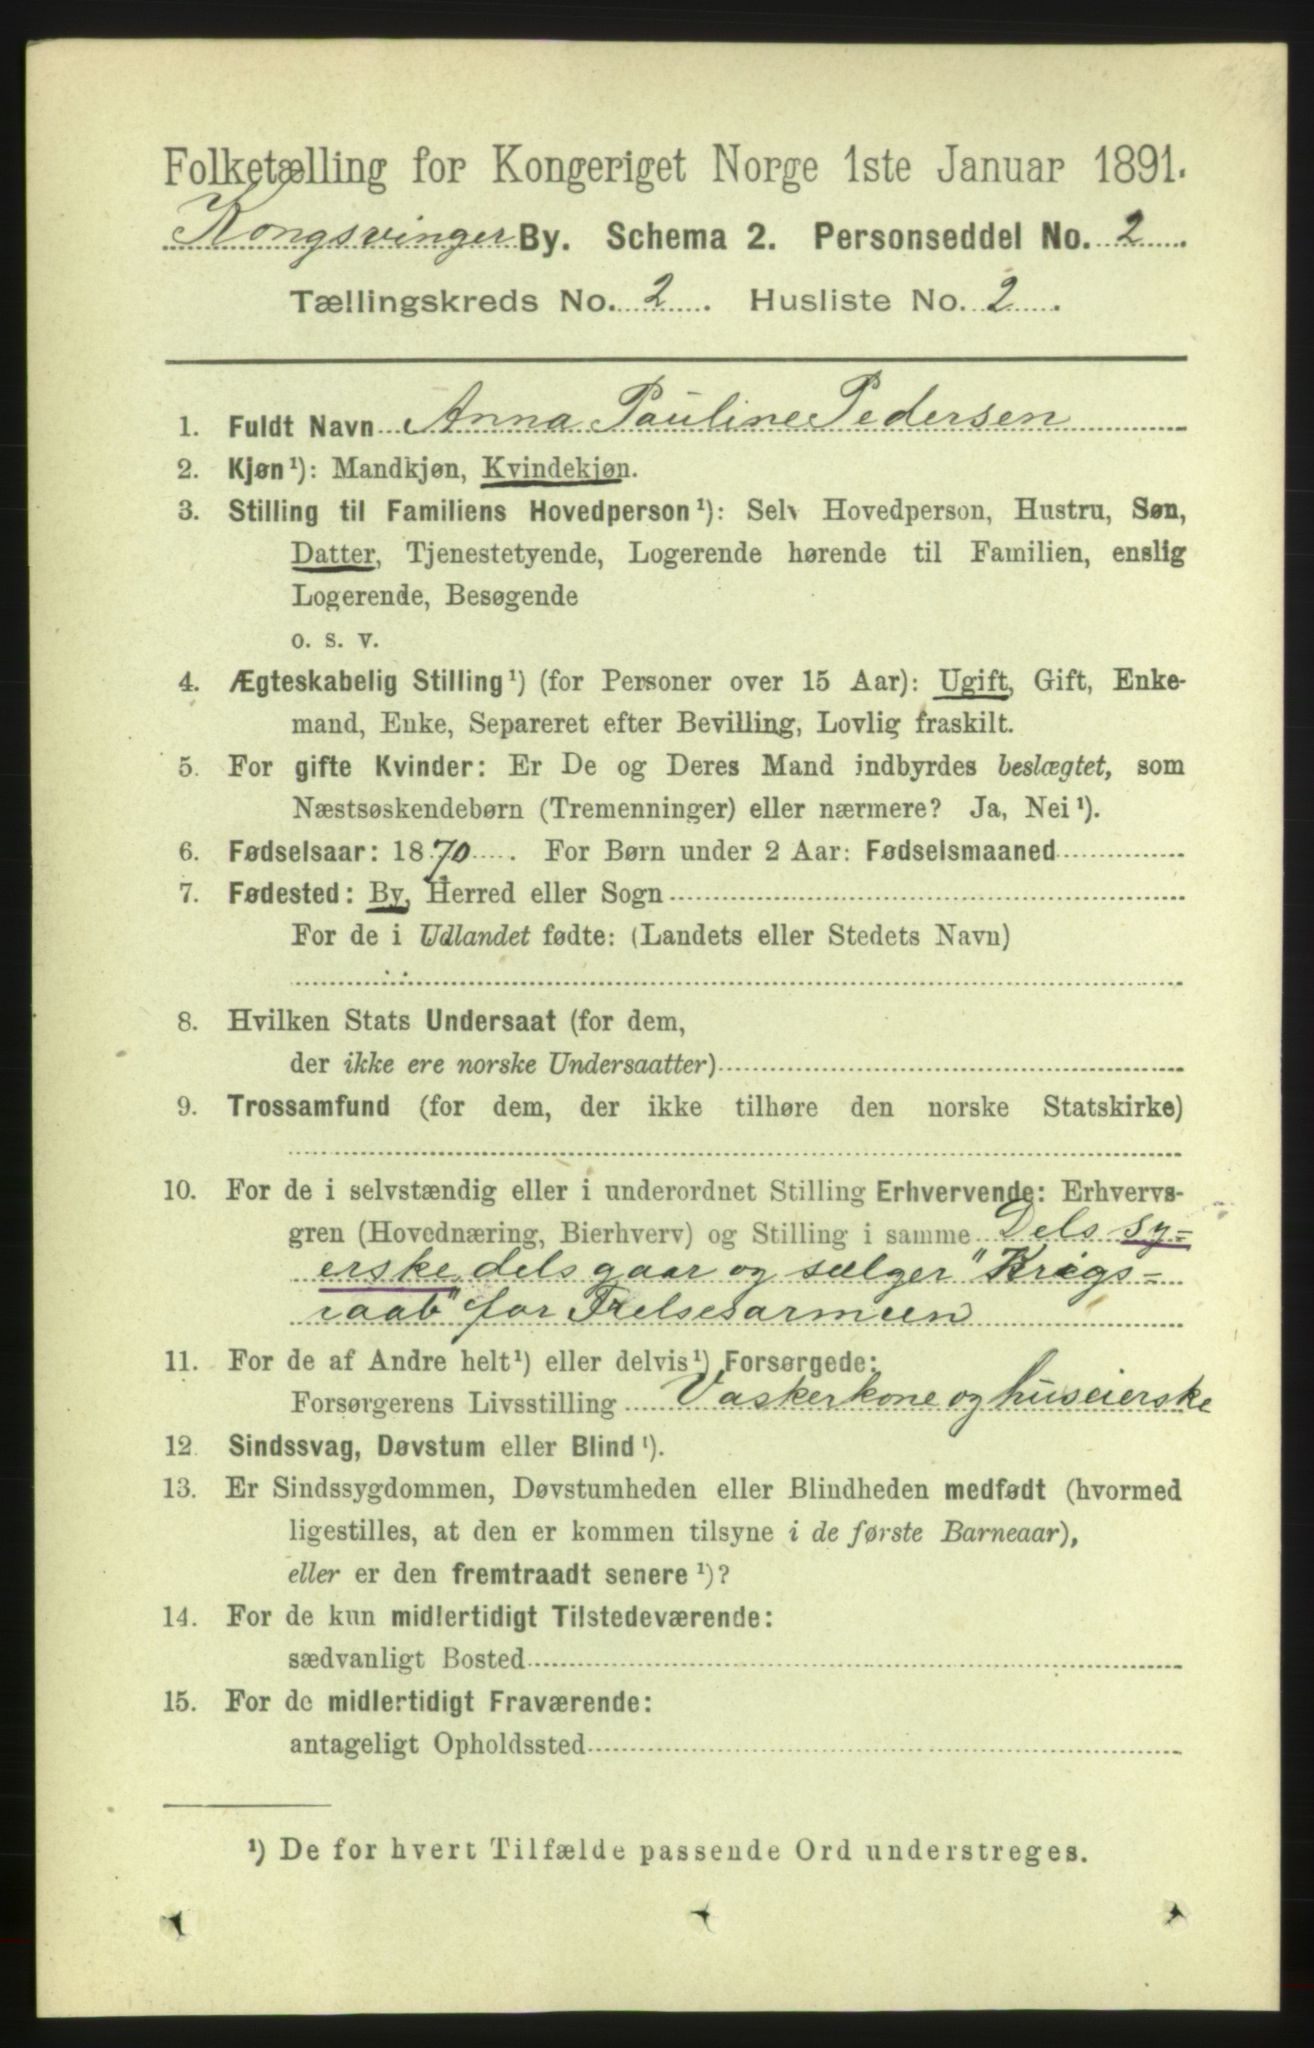 Folketælling for Kongeriget Norge 1ste Januar 1891.
Kongsvinger By. Schema 2. Personseddel No. 2
Tællingskreds No. 2. Husliste No. 2.
1. Fuldt Navn Anna Pauline Pedersen
2. Kjøn¹): Mandkjøn, Kvindekjøn.
3. Stilling til Familiens Hovedperson¹): Selv Hovedperson, Hustru, Søn,
Datter, Tjenestetyende, Logerende hørende til Familien, enslig
Logerende, Besøgende
o. s. v.
4. Ægteskabelig Stilling¹) (for Personer over 15 Aar): Ugift, Gift, Enke-
mand, Enke, Separeret efter Bevilling, Lovlig fraskilt.
5. For gifte Kvinder: Er De og Deres Mand indbyrdes beslægtet, som
Næstsøskendebørn (Tremenninger) eller nærmere? Ja, Nei¹).
6. Fødselsaar: 1870. For Børn under 2 Aar: Fødselsmaaned
7. Fødested: By, Herred eller Sogn
For de i Udlandet fødte: (Landets eller Stedets Navn)
8. Hvilken Stats Undersaat (for dem,
der ikke ere norske Undersaatter)
9. Trossamfund (for dem, der ikke tilhøre den norske Statskirke)
10. For de i selvstændig eller i underordnet Stilling Erhvervende: Erhvervs-
gren (Hovednæring, Bierhverv) og Stilling i samme Dels sy=
erske dels gaar og sælger "Krigs=
raab" for Frelsesarmeen
11. For de af Andre helt¹) eller delvis¹) Forsørgede:
Forsørgerens Livsstilling Vaskerkone og huseierske
12 Sindssvag, Døvstum eller Blind¹).
13. Er Sindssygdommen, Døvstumheden eller Blindheden medfødt (hvormed
ligestilles, at den er kommen tilsyne i de første Barneaar),
eller er den fremtraadt senere¹)?
14. For de kun midlertidigt Tilstedeværende:
sædvanligt Bosted
15. For de midlertidigt Fraværende:
antageligt Opholdssted
¹) De for hvert Tilfælde passende Ord understreges.